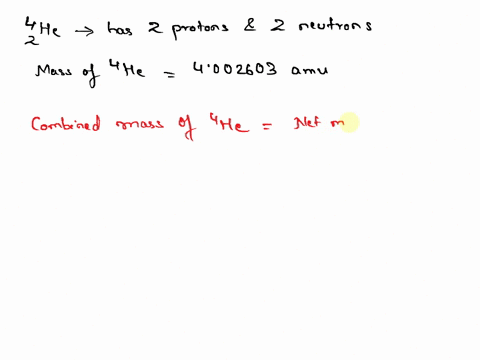 ⁴₂He → has 2 protons & 2 neutrons
Mass of ⁴He = 4.002603 amu
Combined mass of ⁴He = Net m